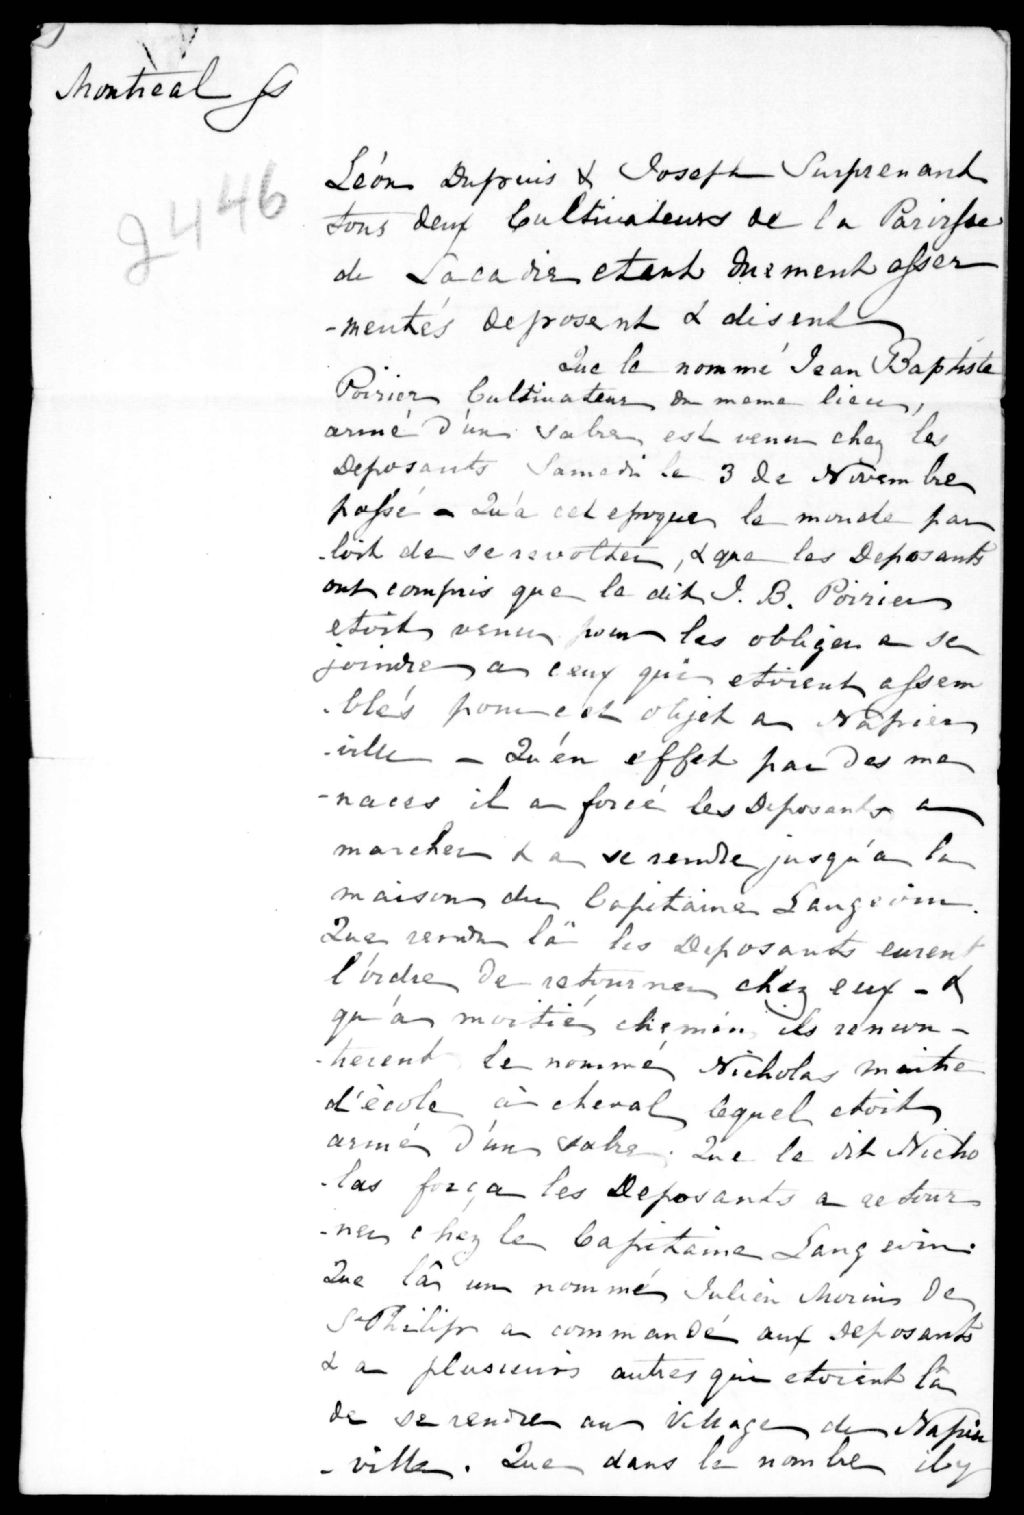 Montreal ss
2446
Léon Dupuis & Joseph Surprenant
tous deux Cultivateurs de la Paroisse
de Lacadie etant duement asser
-mentés deposent & disent
Que le nommé Jean Baptiste
Poirier Cultivateur du meme lieu,
armé d'un sabre est venu chez les
Deposants Samedi le 3 de Novembre
passé - Qu'a cet epoque le monde par
-loit de se revolter, & que les Deposants
ont compris que le dit J. B. Poirier
etoit venu pour les obliger a se
joindre a ceux qui etoient assem
-blés pour cet objet a Napier
-ville - Qu'en effet par des me
-naces il a forcé les Deposants a
marcher & a se rendre jusqu'a la
maison du Capitaine Langevin.
Que rendu là les Deposants eurent
l'ordre de retourner chez eux - &
qu'a moitié chemin ils rencon-
-trerent le nommé Nicholas maitre
d'école à cheval lequel etoit
armé d'un sabre. Que le dit Nicho
-las força les Deposants a retour
-ner chez le Capitaine Langevin.
Que là un nommé Julien Morin de
St Philip a commandé aux Deposants
& a plusieurs autres qui etoient là
de se rendre au village de Napier
-ville. Que dans le nombre il y